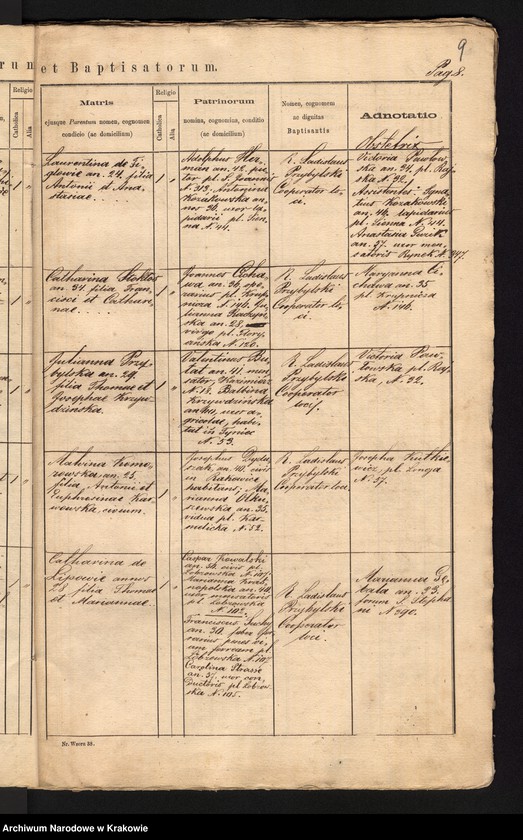 9
run et Baptisatorum.
Pag 8.
Religio
Catholica
Alia
Matris
ejusque Parentum nomen, cognomen
condicio (ac domicilium)
Religio
Catholica
Alia
Patrinorum
nomina, cognomina, conditio
(ac domicilium)
Nomen, cognomen
ac dignitas
Baptisantis
Adnotatio
Laurentina de
an. 24. filia
Antonii et Ana-
stasiae
1
"
Adolphus Her-
man an. 42. pi-
pl. S. Joannis
N. 313. Antonina
Kozakowska an-
nor 36. uxor la-
pidarii pl. Sien-
na N. 44.
R. Ladislaus
Przybylski
Cooperator lo-
ci.
Obstetrix
Victoria Pawlow-
ska an. 34. pl. Raj-
ska N. 92.
Assistentes: Igna-
tius Kozakowski
an. 46. lapidarius
pl. Sienna N. 44.
Anastasia
an. 57. uxor men-
satoris Rynek N. 347.
Catharina
an. 34 filia Fran-
cisci et Cathari-
nae
1
"
Joannes Cicha-
wa an. 36. ope-
rarius pl. Krup-
nicza N. 146. Ju-
lianna
ska an. 28.
vidua pl. Flory-
anska N. 120.
R. Ladislaus
Przybylski
Cooperator lo-
ci.
Maryanna Ci-
chawa an. 35
pl. Krupnicza
N. 146.
Julianna Przy-
bylska an. 29.
filia Thomae et
Josephae Krzyw-
dzinska.
1
"
Valentinus Bu-
lat an. 41 mer-
cator Kazimierz
N. 18. Balbina
Krzywdzinska
an. 40, uxor a-
gricolae, habi-
tat in Tyniec
N. 53.
R. Ladislaus
Przybylski
Cooperator
loci.
Victoria Paw-
lowska pl. Raj-
ska, N. 92.
Malvina Komo-
rowska an. 23.
filia Antonii et
Euphrosinae Kar-
wowska, civium.
1
"
Josephus
an. 40. civis
in Rakowice
habitans, Ma-
rianna Olku-
szewska an. 35.
vidua pl. Kar-
melicka N. 52.
R. Ladislaus
Przybylski
Cooperator loci.
Josepha Kutkie-
wicz, pl. Longa
N. 37.
Catharina de
Lipowie annor
28 filia Thomae
et Mariannae.
1
"
Caspar Kowalski
an. 36. civis pl.
Lobzowska N. 107.
Marianna
an. 40.
uxor
pl. Lobzowska
N. 102.
Franciscus
an. 30.
pl.
Lobzowska N. 107.
Carolina Strasse
an. 37. uxor con-
ductoris pl. Lobzow-
ska N. 105.
R. Ladislaus
Przybylski
Cooperator
loci.
Maryanna
an. 53.
forum S. Stepha-
ni N. 290.
Nr. Wzoru 38.
Archiwum Narodowe w Krakowie